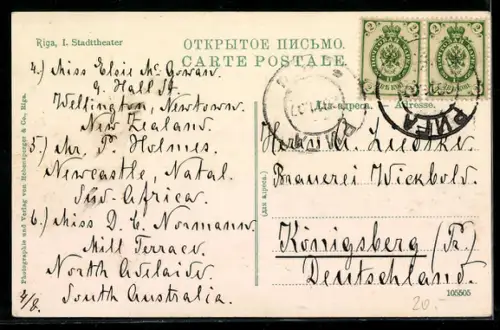 Riga, I. Stadttheater
ОТКРЫТОЕ ПИСЬМО.
CARTE POSTALE.
Для адреса. — Adresse.
4.) Miss Elsie Mc Gowan.
9. Hall St
Wellington, Newtown
New Zealand
5.) Mr. P. Holmes.
Newcastle, Natal.
Süd-Africa.
6.) Miss D. C. Normann.
Mill Terrace.
North Adelaide.
South Australia.
4/8.
Herrn A. Liedtke
Brauerei Wickbold.
Königsberg (Pr.)
Deutschland.
(Для адреса.)
Photographie und Verlag von Hebensperger & Co., Riga.
105505
20.-
РИГА
2 2 2 2